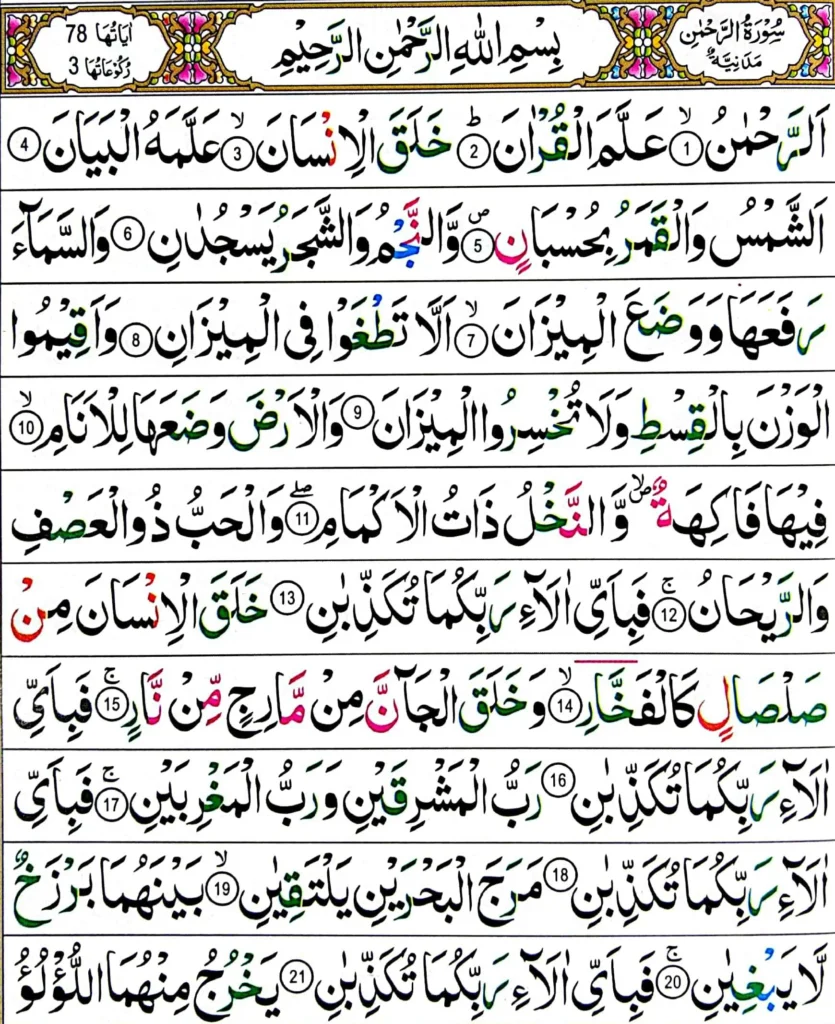 سُوْرَةُ الرَّحْمٰنِ مَدَنِيَّةٌ
بِسْمِ اللّٰهِ الرَّحْمٰنِ الرَّحِيْمِ
اٰيَاتُهَا 78
رُكُوْعَاتُهَا 3
اَلرَّحْمٰنُ ۙ1 عَلَّمَ الْقُرْاٰنَ ؕ2 خَلَقَ الْاِنْسَانَ ۙ3 عَلَّمَهُ الْبَيَانَ 4
اَلشَّمْسُ وَالْقَمَرُ بِحُسْبَانٍ ۪5 وَّالنَّجْمُ وَالشَّجَرُ يَسْجُدٰنِ 6 وَالسَّمَآءَ
رَفَعَهَا وَوَضَعَ الْمِيْزَانَ ۙ7 اَلَّا تَطْغَوْا فِى الْمِيْزَانِ 8 وَاَقِيْمُوا
الْوَزْنَ بِالْقِسْطِ وَلَا تُخْسِرُوا الْمِيْزَانَ 9 وَالْاَرْضَ وَضَعَهَا لِلْاَنَامِ ۙ10
فِيْهَا فَاكِهَةٌ ۪ۙ وَّالنَّخْلُ ذَاتُ الْاَكْمَامِ ۖ11 وَالْحَبُّ ذُوالْعَصْفِ
وَالرَّيْحَانُ ۚ12 فَبِاَىِّ اٰلَآءِ رَبِّكُمَا تُكَذِّبٰنِ 13 خَلَقَ الْاِنْسَانَ مِنْ
صَلْصَالٍ كَالْفَخَّارِ ۙ14 وَخَلَقَ الْجَآنَّ مِنْ مَّارِجٍ مِّنْ نَّارٍ ۚ15 فَبِاَىِّ
اٰلَآءِ رَبِّكُمَا تُكَذِّبٰنِ 16 رَبُّ الْمَشْرِقَيْنِ وَرَبُّ الْمَغْرِبَيْنِ ۚ17 فَبِاَىِّ
اٰلَآءِ رَبِّكُمَا تُكَذِّبٰنِ 18 مَرَجَ الْبَحْرَيْنِ يَلْتَقِيٰنِ ۙ19 بَيْنَهُمَا بَرْزَخٌ
لَّا يَبْغِيٰنِ ۚ20 فَبِاَىِّ اٰلَآءِ رَبِّكُمَا تُكَذِّبٰنِ 21 يَخْرُجُ مِنْهُمَا اللُّؤْلُؤُ